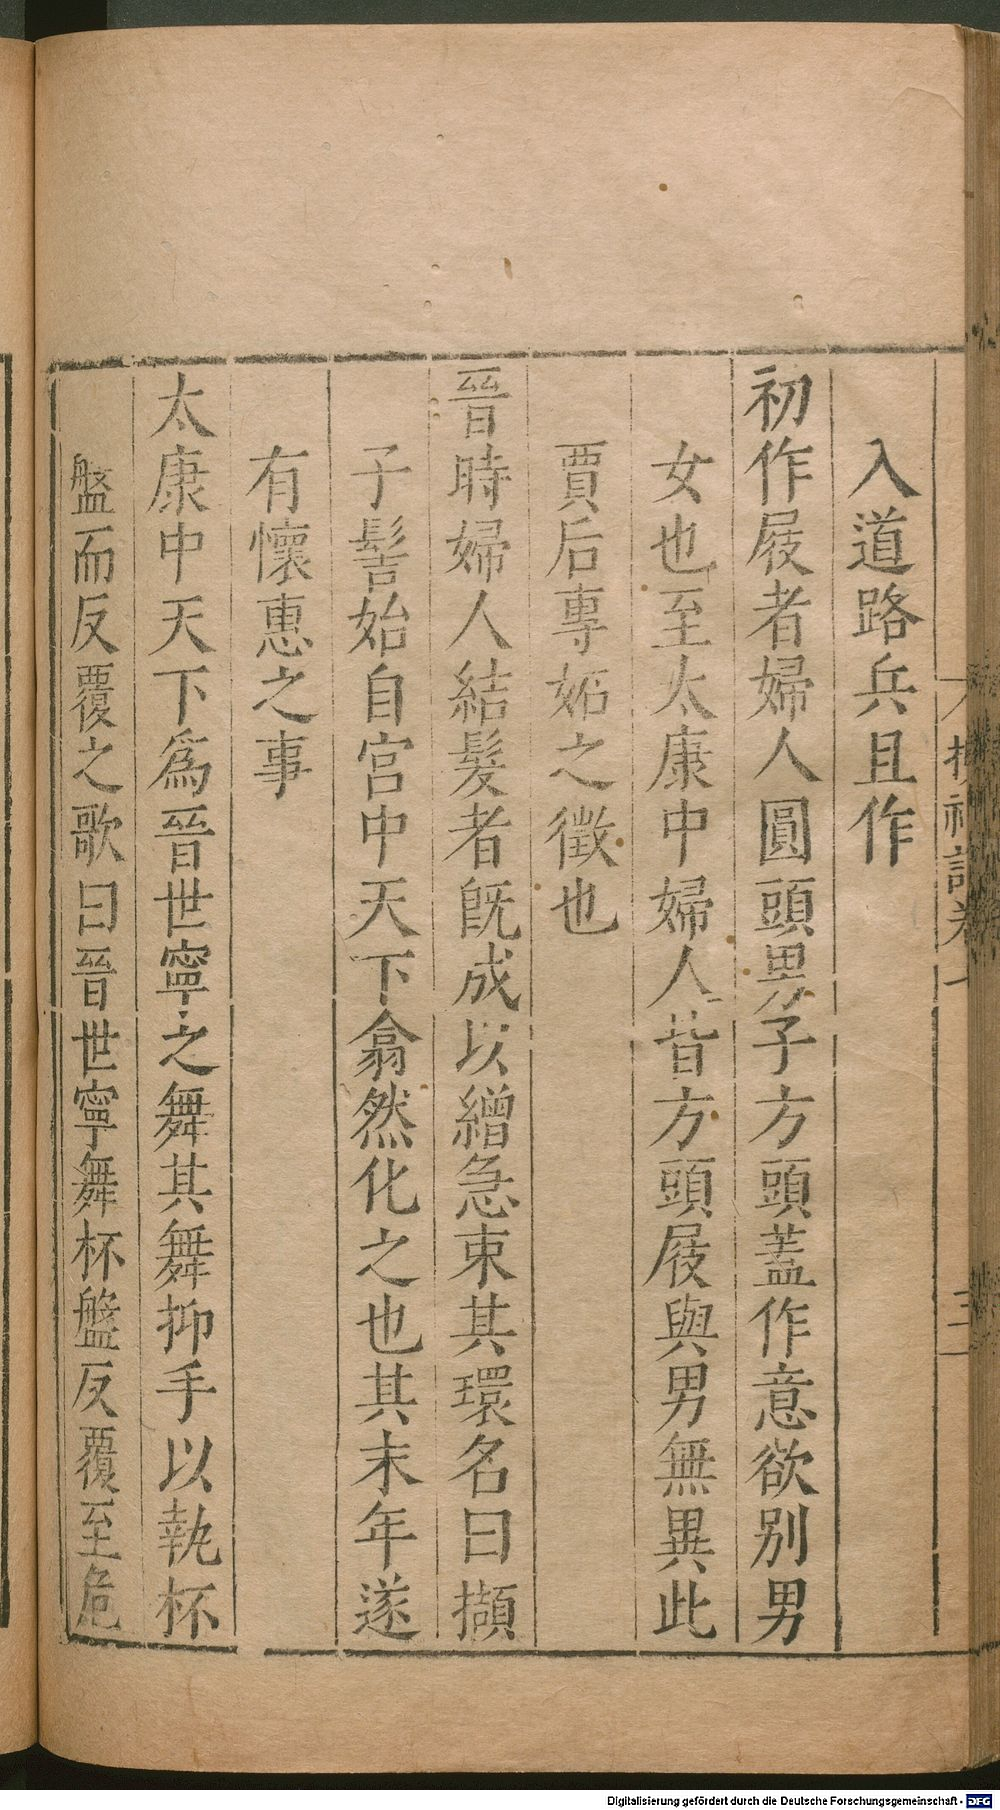 入道路兵且作
初作屐者婦人圓頭男子方頭蓋作意欲别男
女也至太康中婦人皆方頭屐與男無異此
賈后專妬之徵也
晉時婦人結髮者既成以繒急束其環名曰擷
子髻始自宮中天下翕然化之也其末年遂
有懷惠之事
太康中天下爲晉世寧之舞其舞抑手以執杯
盤而反覆之歌曰晉世寧舞杯盤反覆至危
Digitalisierung gefördert durch die Deutsche Forschungsgemeinschaft - DFG